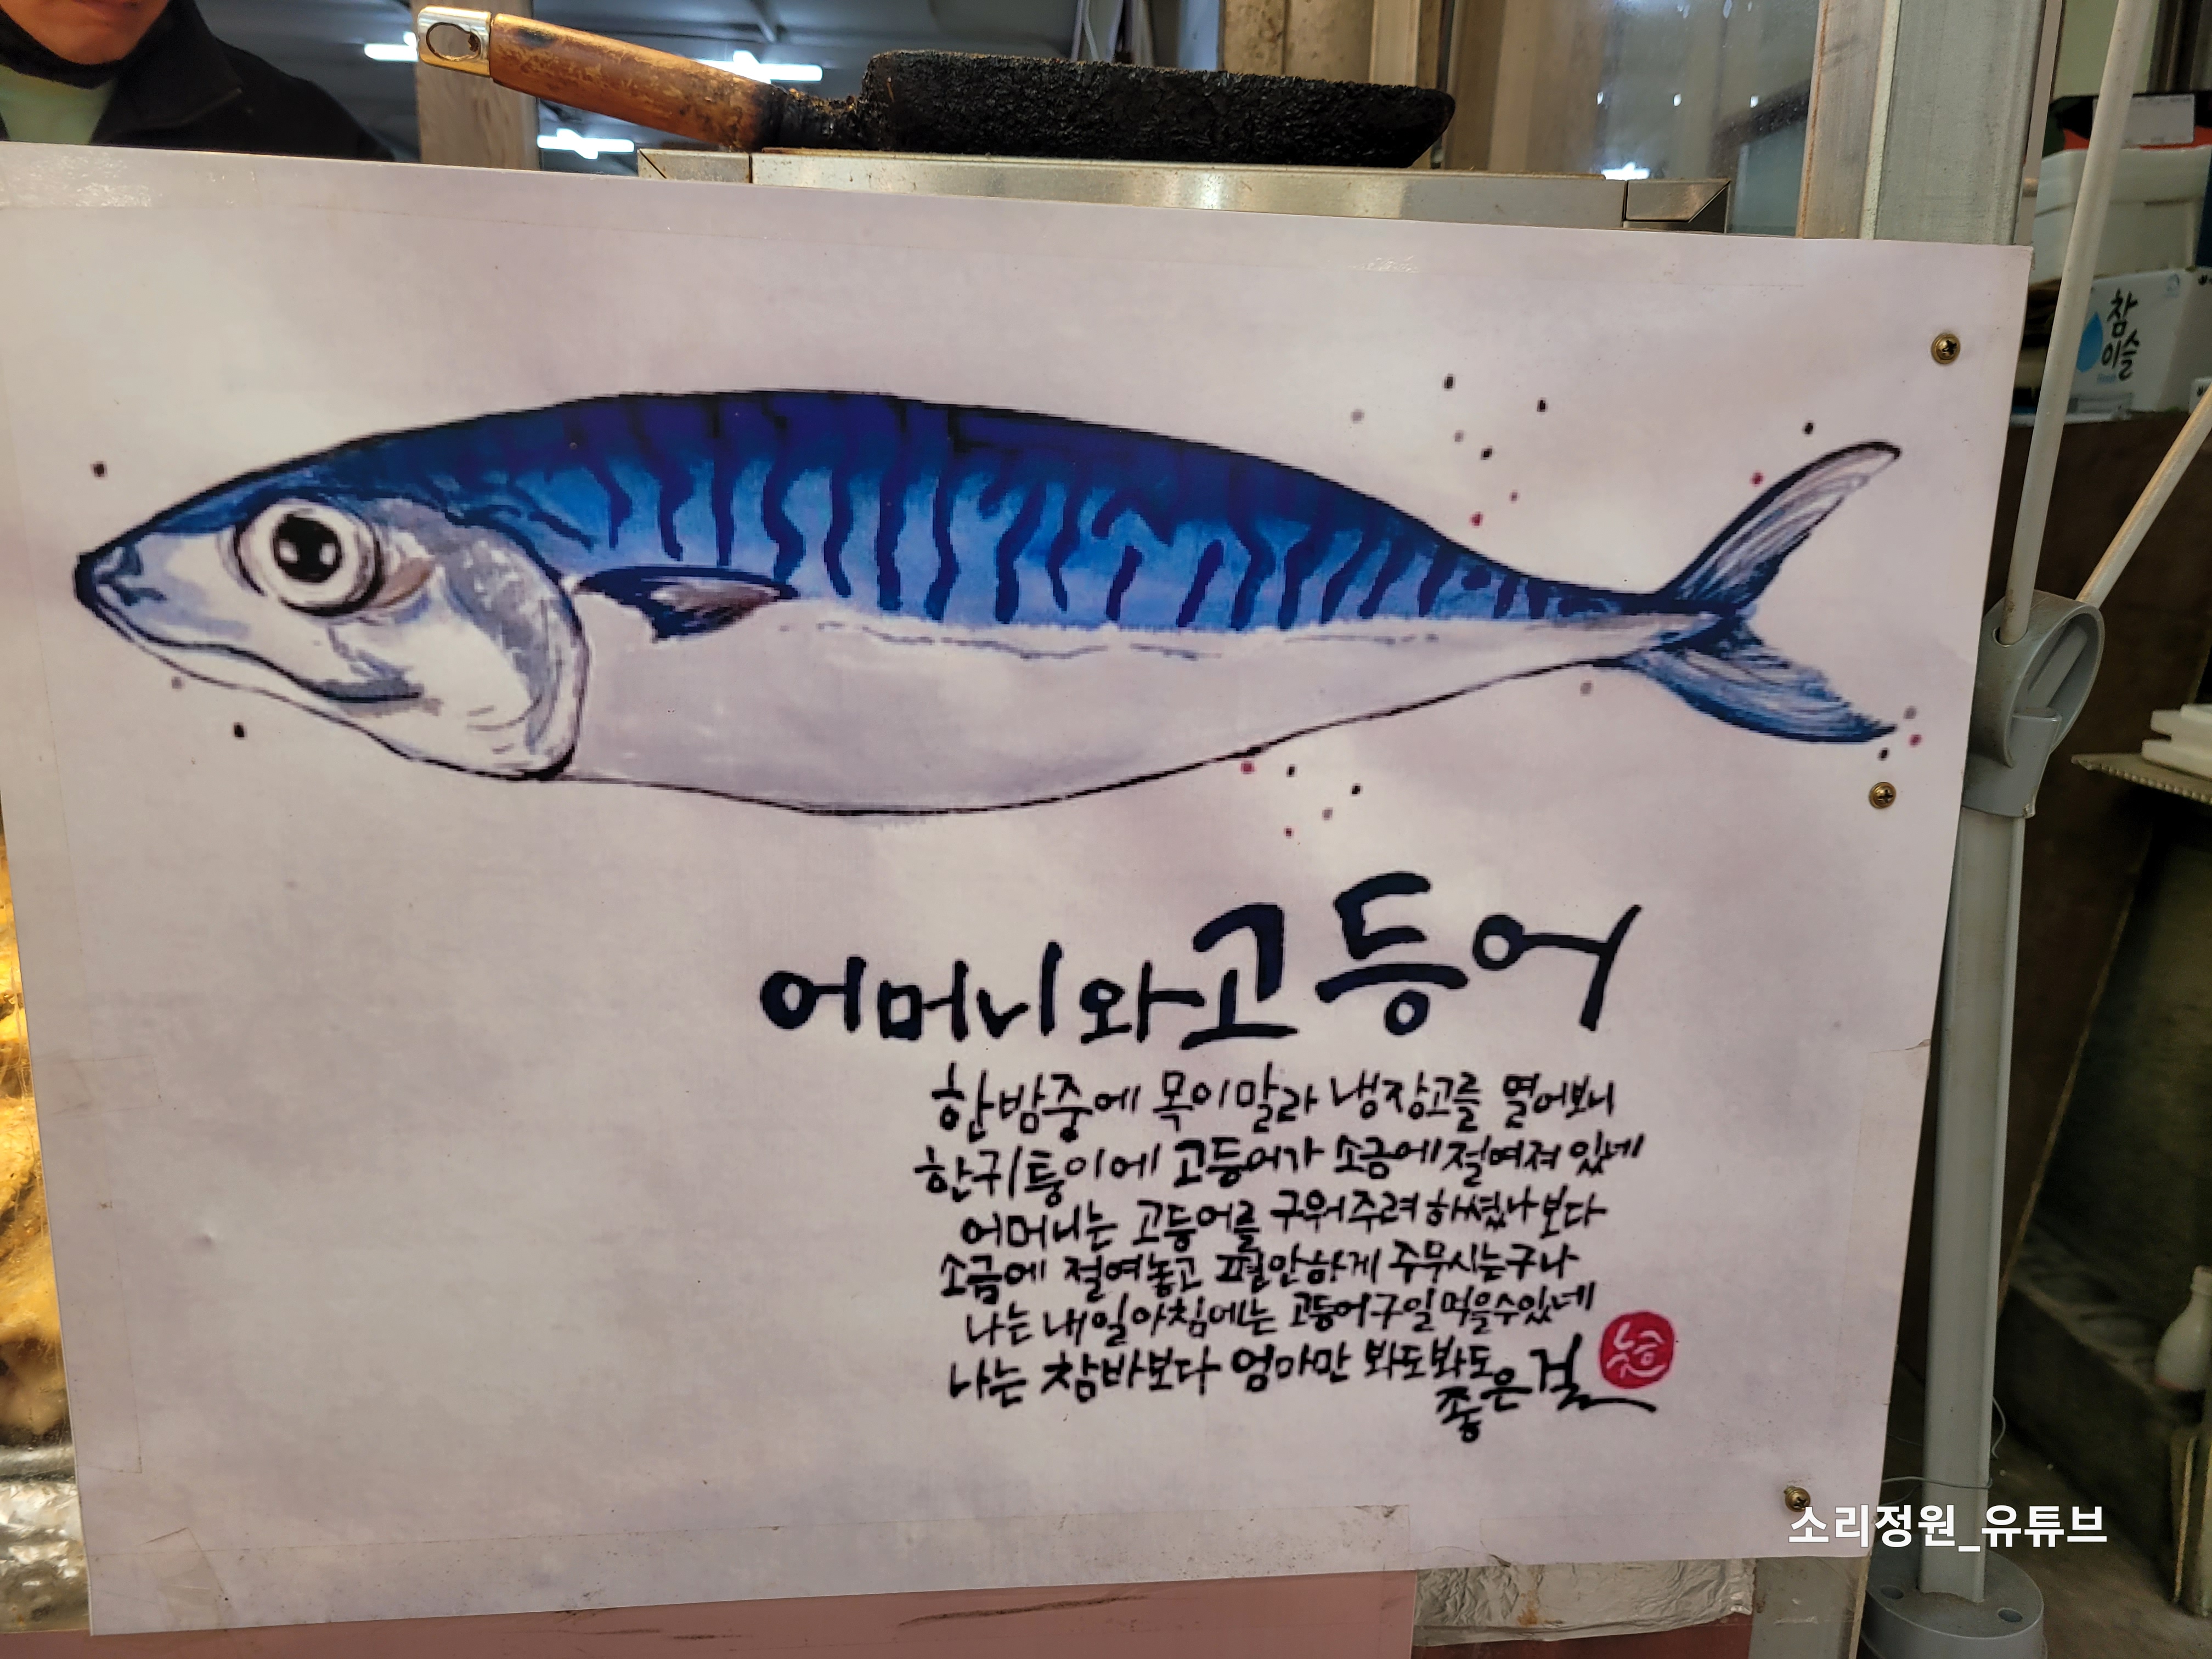 참
이슬
어머니와고등어
한밤중에 목이말라 냉장고를 열어보니
한귀퉁이에 고등어가 소금에 절여져 있네
어머니는 고등어를 구워주려 하셨나보다
소금에 절여놓고 편안하게 주무시는구나
나는 내일아침에는 고등어구일먹을수있네
나는 참바보다 엄마만 봐도봐도
좋은걸
소리정원_유튜브